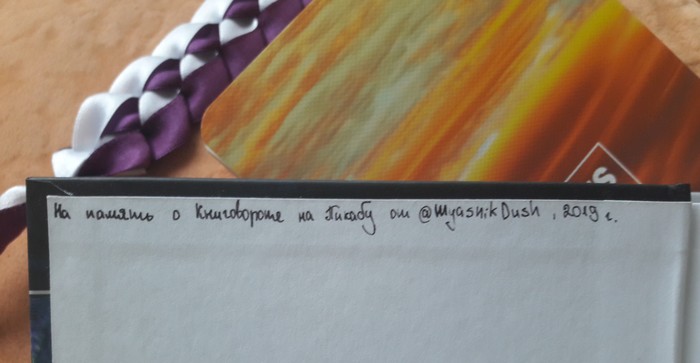 На память о Книговороте на Пикабу от @MyasnikDush, 2019 г.